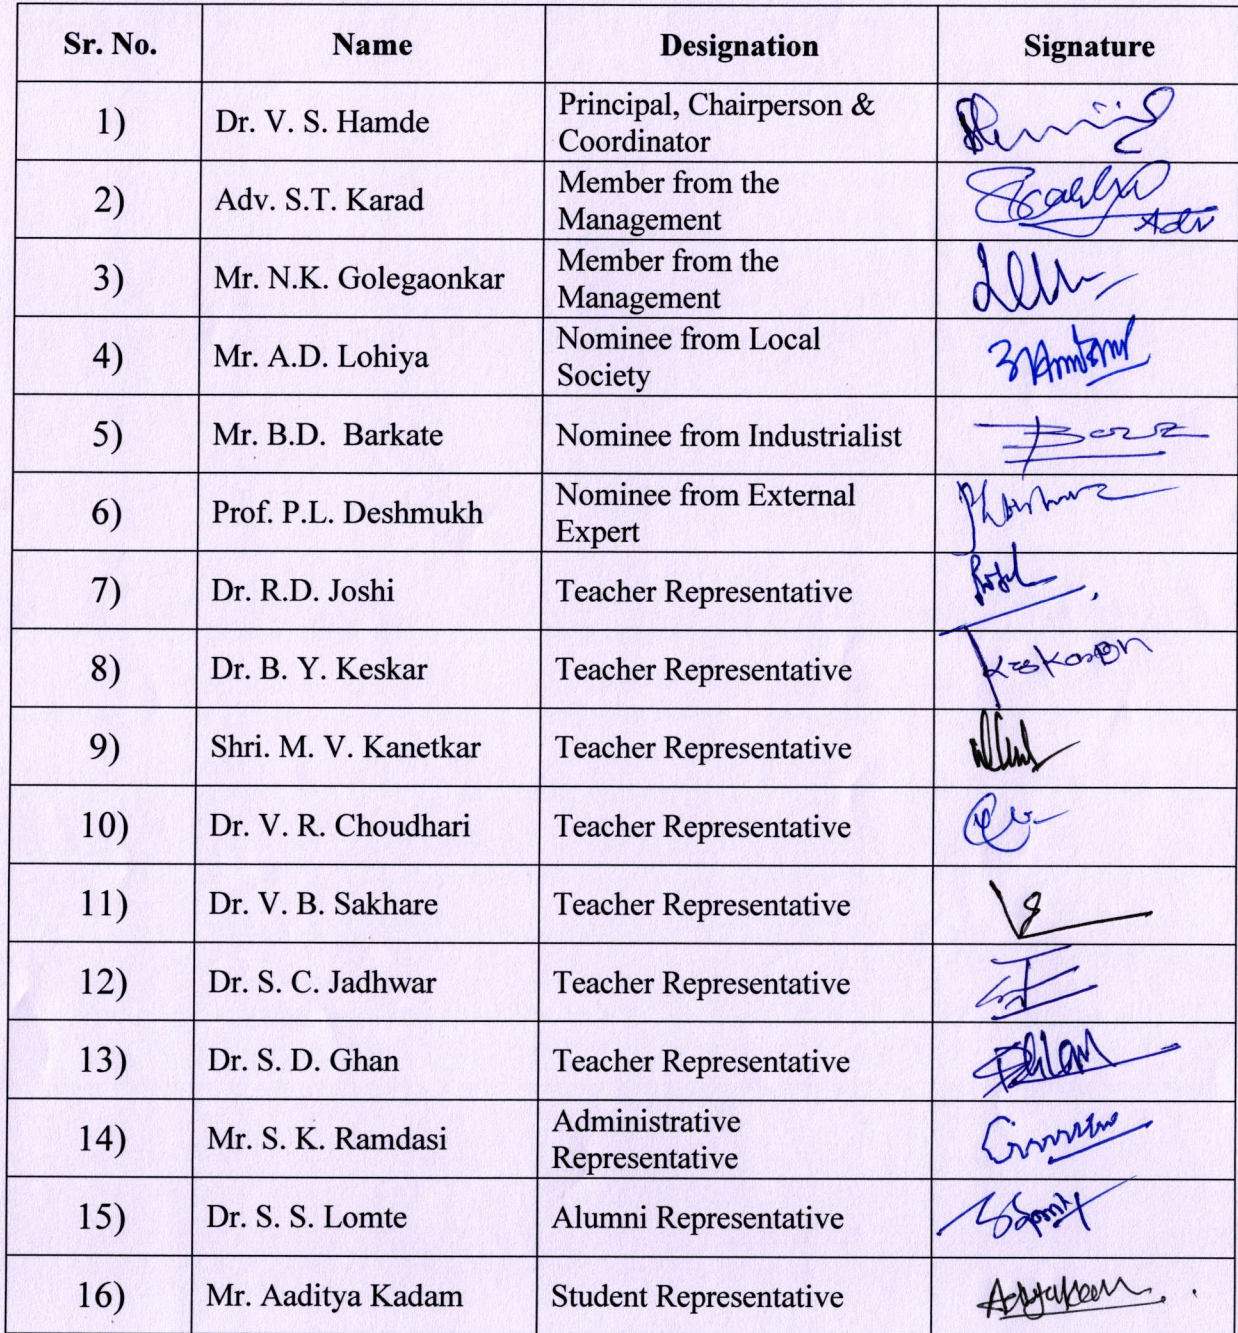 Sr. No. Name Designation Signature
1) Dr. V. S. Hamde Principal, Chairperson &
Coordinator
2) Adv. S.T. Karad Member from the
Management Adv
3) Mr. N.K. Golegaonkar Member from the
Management
4) Mr. A.D. Lohiya Nominee from Local
Society
5) Mr. B.D. Barkate Nominee from Industrialist
6) Prof. P.L. Deshmukh Nominee from External
Expert
7) Dr. R.D. Joshi Teacher Representative
8) Dr. B. Y. Keskar Teacher Representative
9) Shri. M. V. Kanetkar Teacher Representative
10) Dr. V. R. Choudhari Teacher Representative
11) Dr. V. B. Sakhare Teacher Representative
12) Dr. S. C. Jadhwar Teacher Representative
13) Dr. S. D. Ghan Teacher Representative
14) Mr. S. K. Ramdasi Administrative
Representative
15) Dr. S. S. Lomte Alumni Representative
16) Mr. Aaditya Kadam Student Representative